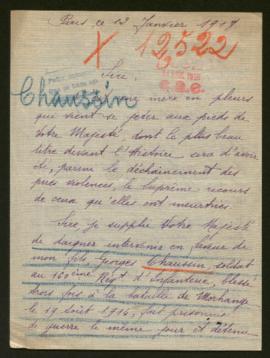 Paris, ce 12 Janvier 1917
X 12522
Chaussin
Sire,
une mère en pleurs
qui vient se jeter aux pieds de
Votre Majesté dont le plus beau
titre devant l'Histoire sera d'avoir
été, parmi le déchaînement des
pires violences, le Suprême recours
de ceux qu'elles ont meurtris.
Sire, je supplie Votre Majesté
de daigner intervenir en faveur de
mon fils Georges Chaussin, soldat
au 160ème Régt d'Infanterie, blessé
trois fois à la bataille de Morhange
le 19 Août 1914, fait prisonnier
de guerre le même jour et détenu